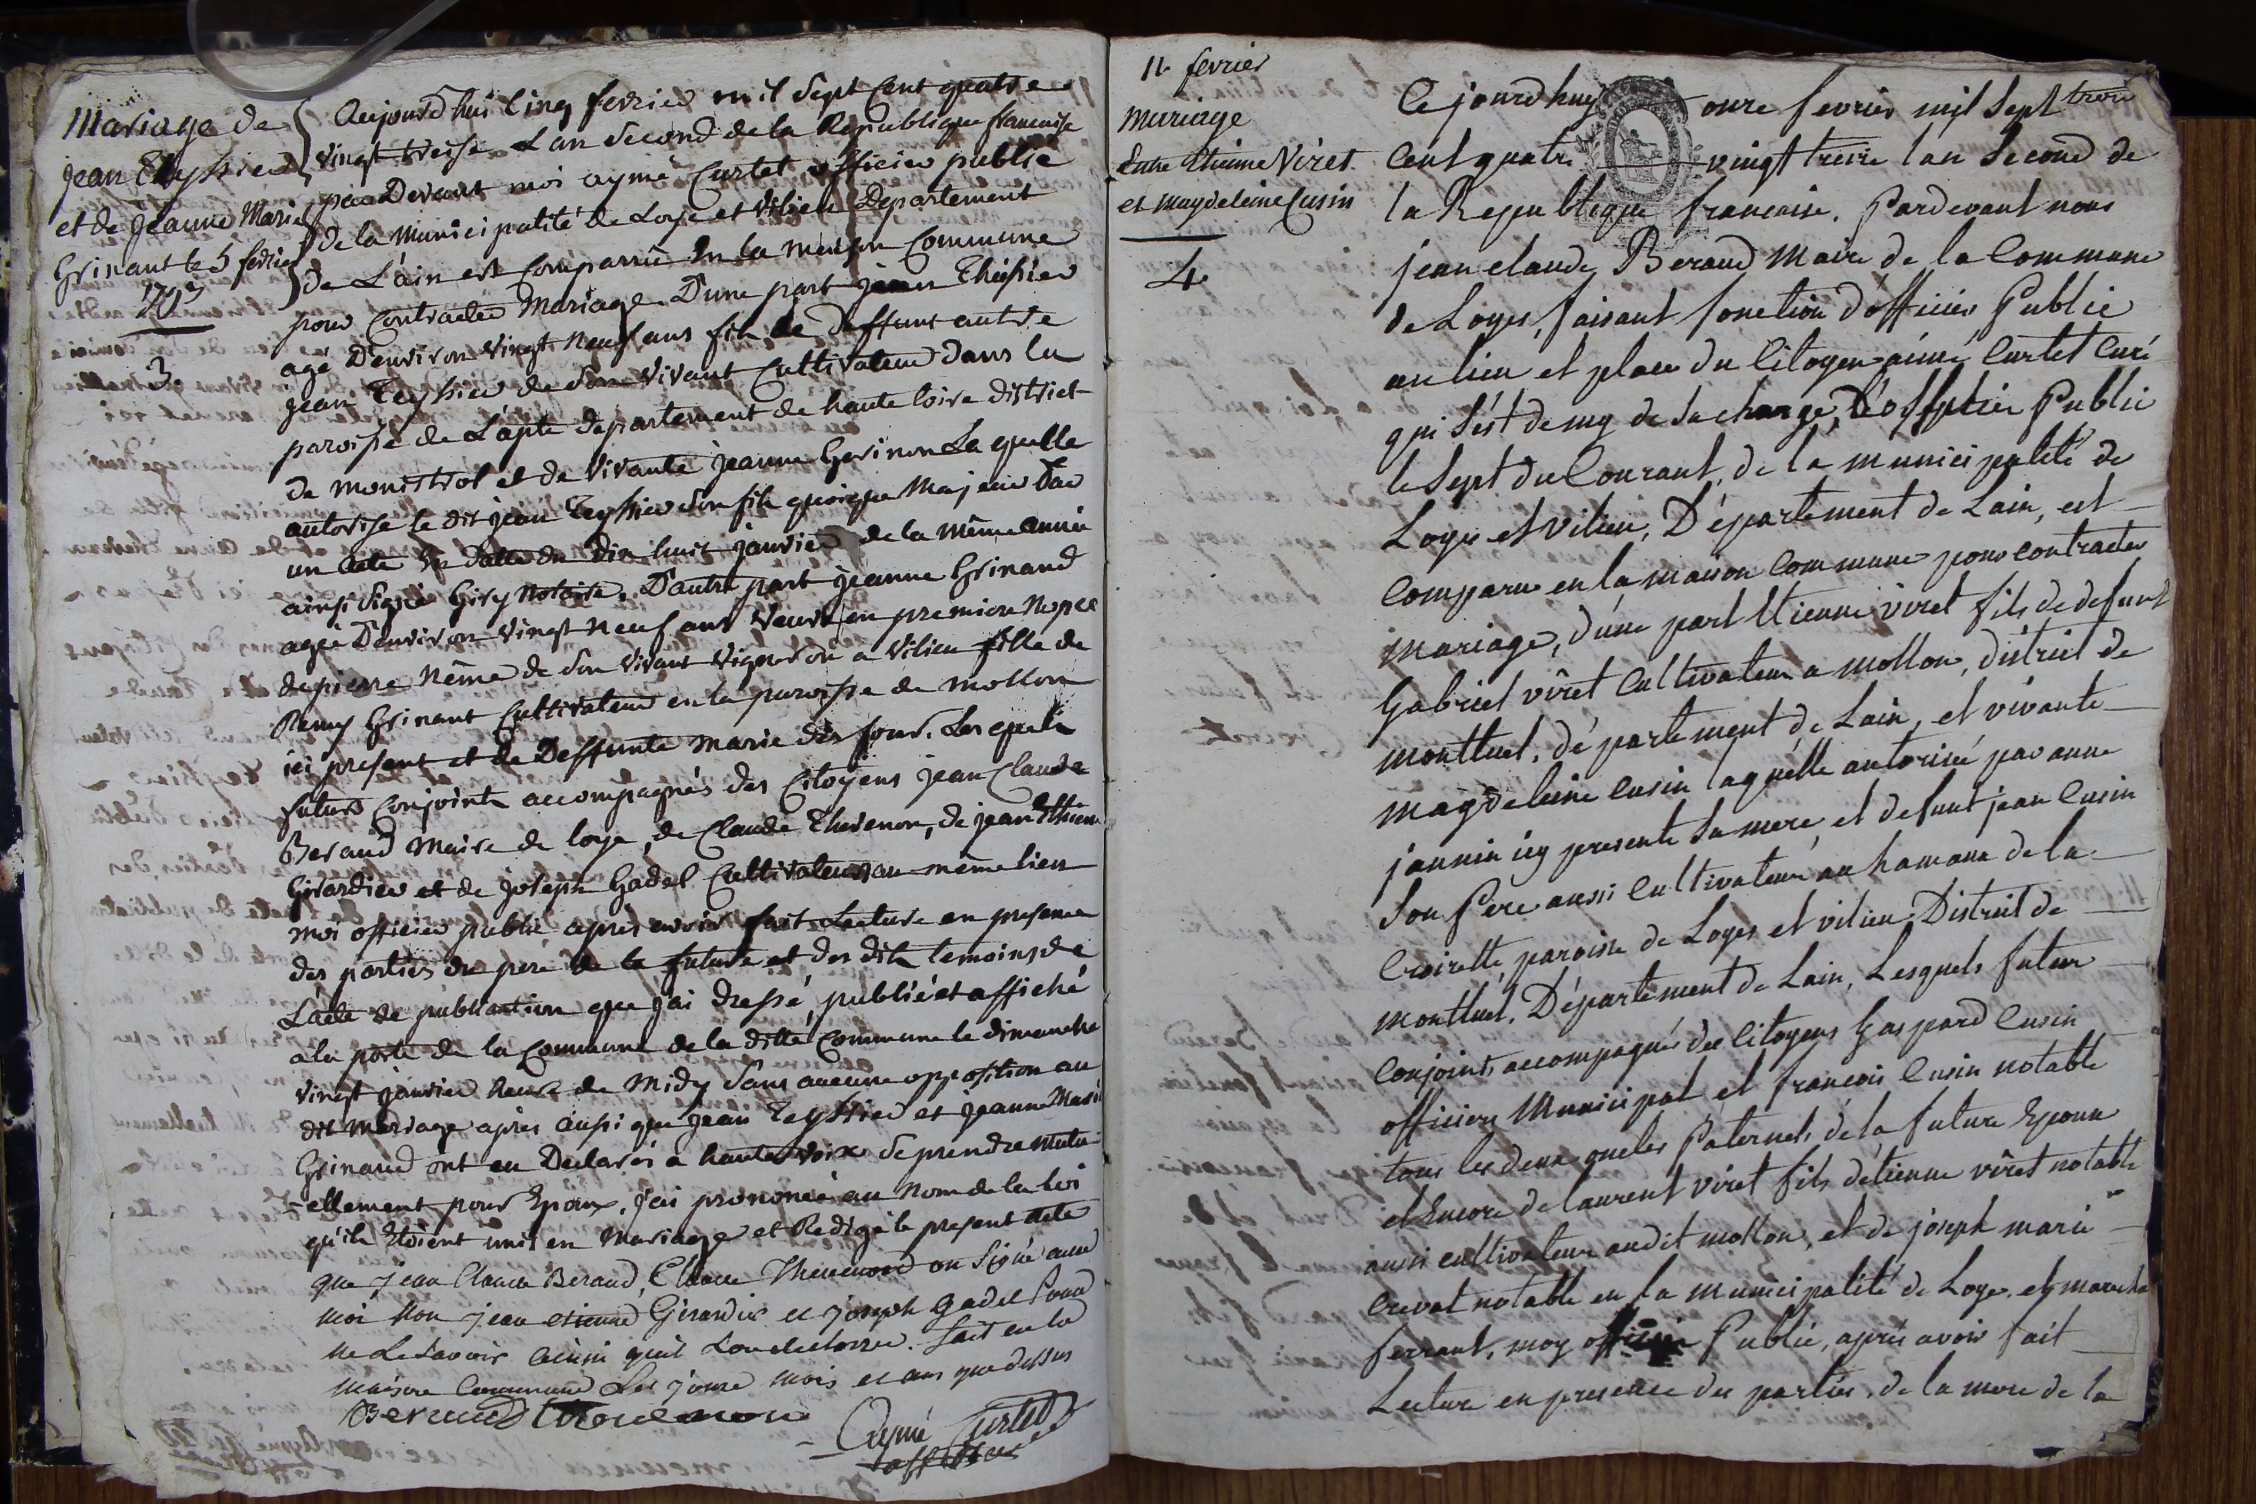 Mariage de
jean Teyssier
et de jeanne Marie
Grinant le 5 fevrier
1793
3
Aujourd'hui Cinq fevrier mil Sept Cent quatre
vingt treise L'an Second de la Republique francaise
par Devant moi aymé Curtet officier public
de la Municipalité de Loye et Vilieu Departement
de L'ain est Comparrû En la maison Commune
pour Contracter Mariage. D'une part jean Theissier
agé D'environ vingt Neuf ans fils de deffunt autre
jean Teyssier de son vivant Cultivateur dans la
paroisse de Lapte departement de haute loire district
de monistrol et de Vivante jeanne Gerinon La quelle
autorise le dit jean Teyssier son fils quoique Majeur Par
un acte En datte du dix huit janvier de la même année
ainsi Signé Giry Notaire. D'autre part jeanne Grinand
agée D'environ vingt Neuf ans Veuve en premiere Nopce
de pierre Nême de son vivant vigneron a vilieu fille de
Remy Grinant Cultivateur en la paroisse de mollon
ici present et de Deffunte Marie des four. Les quels
futurs Conjoints accompagnés des Citoyens jean Claude
Beraud Maire de loye, de Claude Thevenon, de jean Ethienne
Girardier et de joseph Gadel Cultivateurs au même lieu
moi officier public apres avoir fait Lecture en presence
des parties du pere de la future et des dits temoins de
L'acte de publication que j'ai dressé, publié et affiché
a la porte de la Commune de la ditte Commune le dimanche
vingt janvier heure de Midy Sans aucune opposition au
dit Mariage après aussi que jean Teyssier et jeanne Marie
Grinand ont eu Declarés a haute voix se prendre mutu-
-ellement pour Epoux, j'ai prononcé au Nom de la Loi
qu'ils Etoient unis en Mariage et Redigé le present acte
que jean Claude Beraud, Claude Thevenond on Signé avec
moi Non jean etienne Girardier et joseph gadel Pour
ne Le Savoir ainsi quil Lon declarree. fait en la
maison Commune Les jours mois et ans que dessus
Beraud Thevenon
Aymé Curtet
officier
11 fevrier
Mariage
Entre Etienne Viret
et magdeleine Cusin
4
Ce jourd'huy onze fevrier mil Sept trois
Cent quatre vingt treize l'an Second de
la Republique francaise. Pardevant nous
jean claude Beraud Maire de la Commune
de Loyes, faisant fonction d'officier Public
au lieu et place du Citoyen aimé Curtet Curé
qui s'est demy de sa charge D'officier Public
le Sept du Courant, de la municipalité de
Loyes et Vilieu, Département de Lain, est
Comparu en la maison Commune pour contracter
Mariage, d'une part Etienne viret fils de defunt
Gabriel viret Cultivateur a mollon, district de
montluel, département de Lain, et vivante
Magdeleine cusin laquelle autorisée par anne
jannin icy presente Sa mere, et defunt jean Cusin
Son Pere aussi Cultivateur au hamaux de la
Croizette paroisse de Loyes et vilieu District de
montluel, Département de Lain, Lesquels futur
Conjoints accompagnés des Citoyens Gaspard Cusin
officier Municipal et francois Cusin notable
tous les deux oncles Paternels de la future Epouse
et Encore de laurent viret fils detienne viret notable
aussi cultivateur audit mollon, et de joseph marie
Crevat notable en la municipalité de Loye, et marechal
ferrant, moy officier Public, après avoir fait
Lecture en presence des parties, de la mere de la